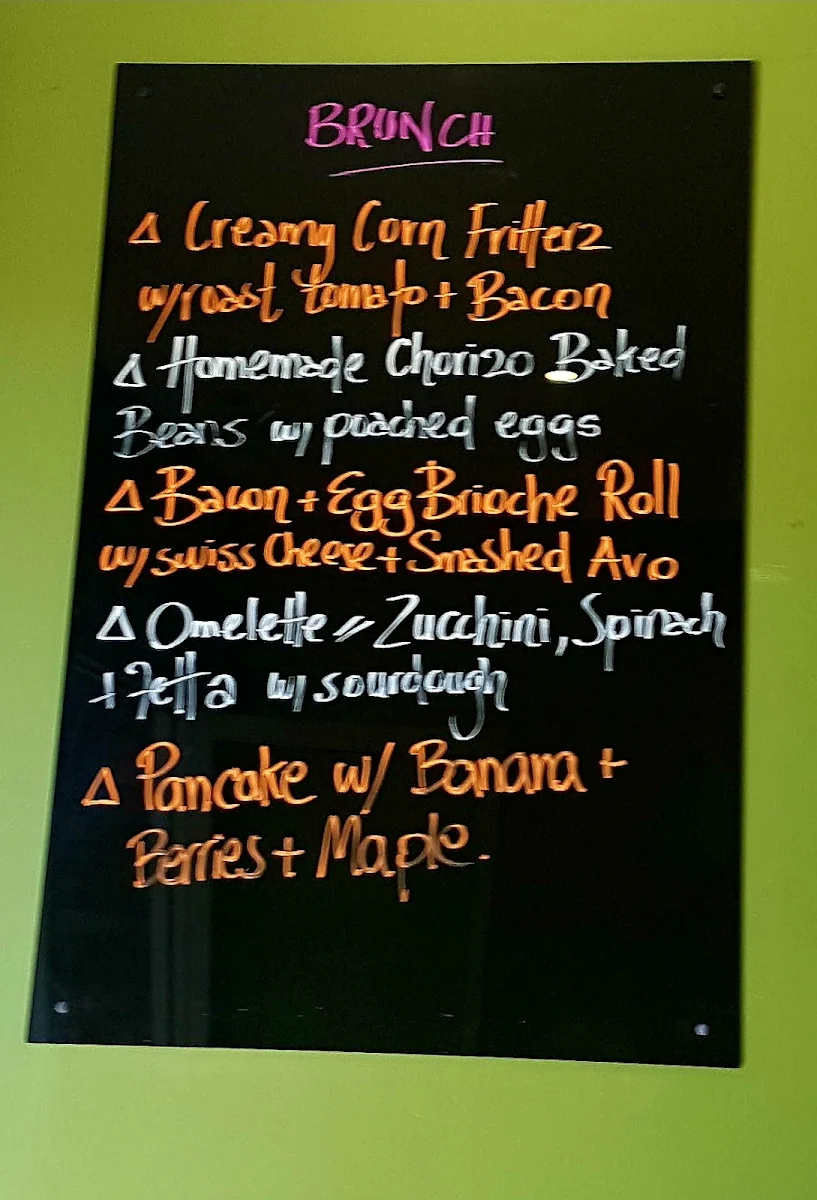 BRUNCH
Δ Creamy Corn Fritterz
w/roast tomato + Bacon
Δ Homemade Chorizo Baked
Beans w/ poached eggs
Δ Bacon + Egg Brioche Roll
w/ swiss Cheese + Smashed Avo
Δ Omelette // Zucchini, Spinach
+ Fetta w/ sourdough
Δ Pancake w/ Banana +
Berries + Maple.